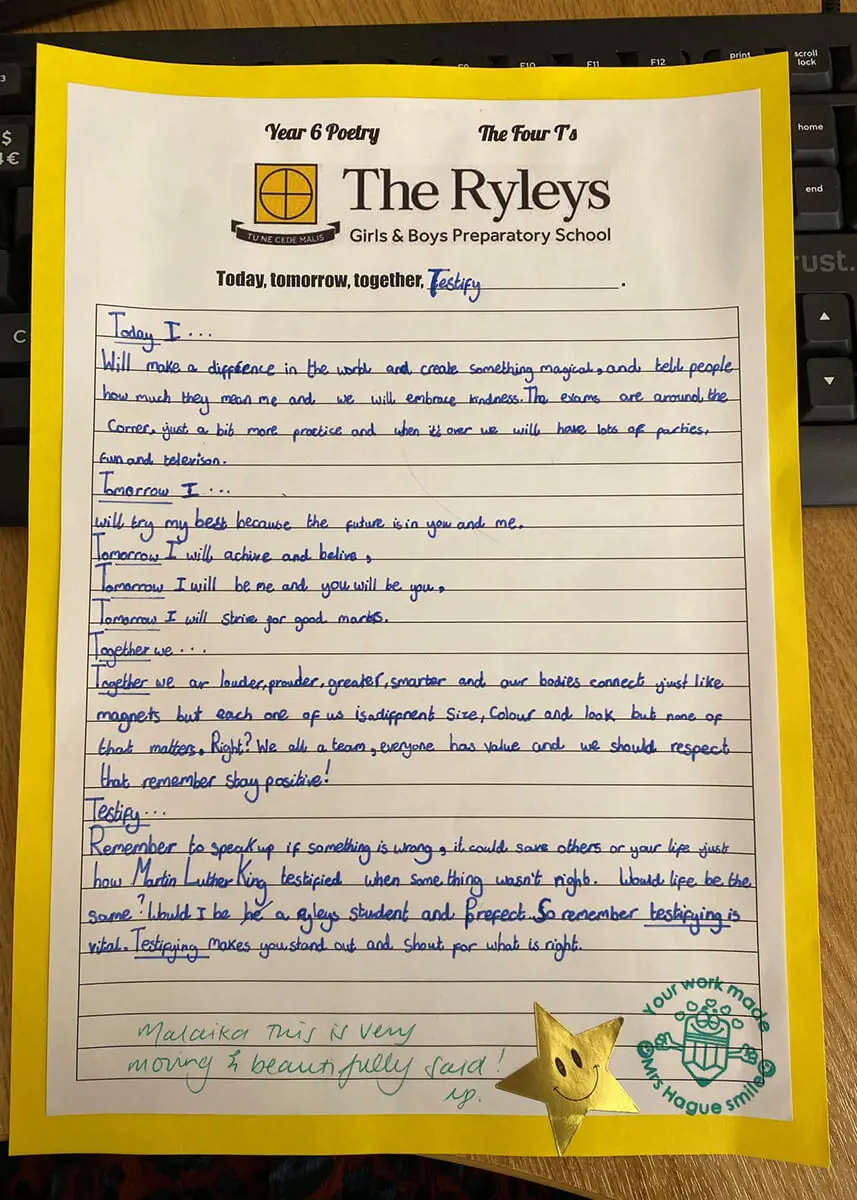 F9 F10 F11 F12 print scroll lock
3
$
4€
home
end
rust.
C
Year 6 Poetry The Four T's
The Ryleys
TU NE CEDE MALIS
Girls & Boys Preparatory School
Today, tomorrow, together, Testify.
Today I ...
Will make a diffrence in the world and create something magical, and tell people
how much they mean me and we will embrace kindness. The exams are around the
Corner, just a bit more practice and when it's over we will have lots of parties,
fun and televison.
Tomorrow I ...
will try my best because the future is in you and me.
Tomorrow I will achive and belive,
Tomorrow I will be me and you will be you,
Tomorrow I will strive for good marks.
Together we ...
Together we ar louder, prouder, greater, smarter and our bodies connect just like
magnets but each one of us is a diffrent Size, Colour and look but none of
that matters. Right? We all a team, everyone has value and we should respect
that remember stay positive!
Testify...
Remember to speak up if something is wrong, it could save others or your life just
how Martin Luther King testified when something wasn't right. Would life be the
same? Would I be be a ryleys student and Prefect. So remember testifying is
vital. Testifying makes you stand out and shout for what is right.
Malaika this is very
moving & beautifully said!
Your work made
Mrs Hague smile